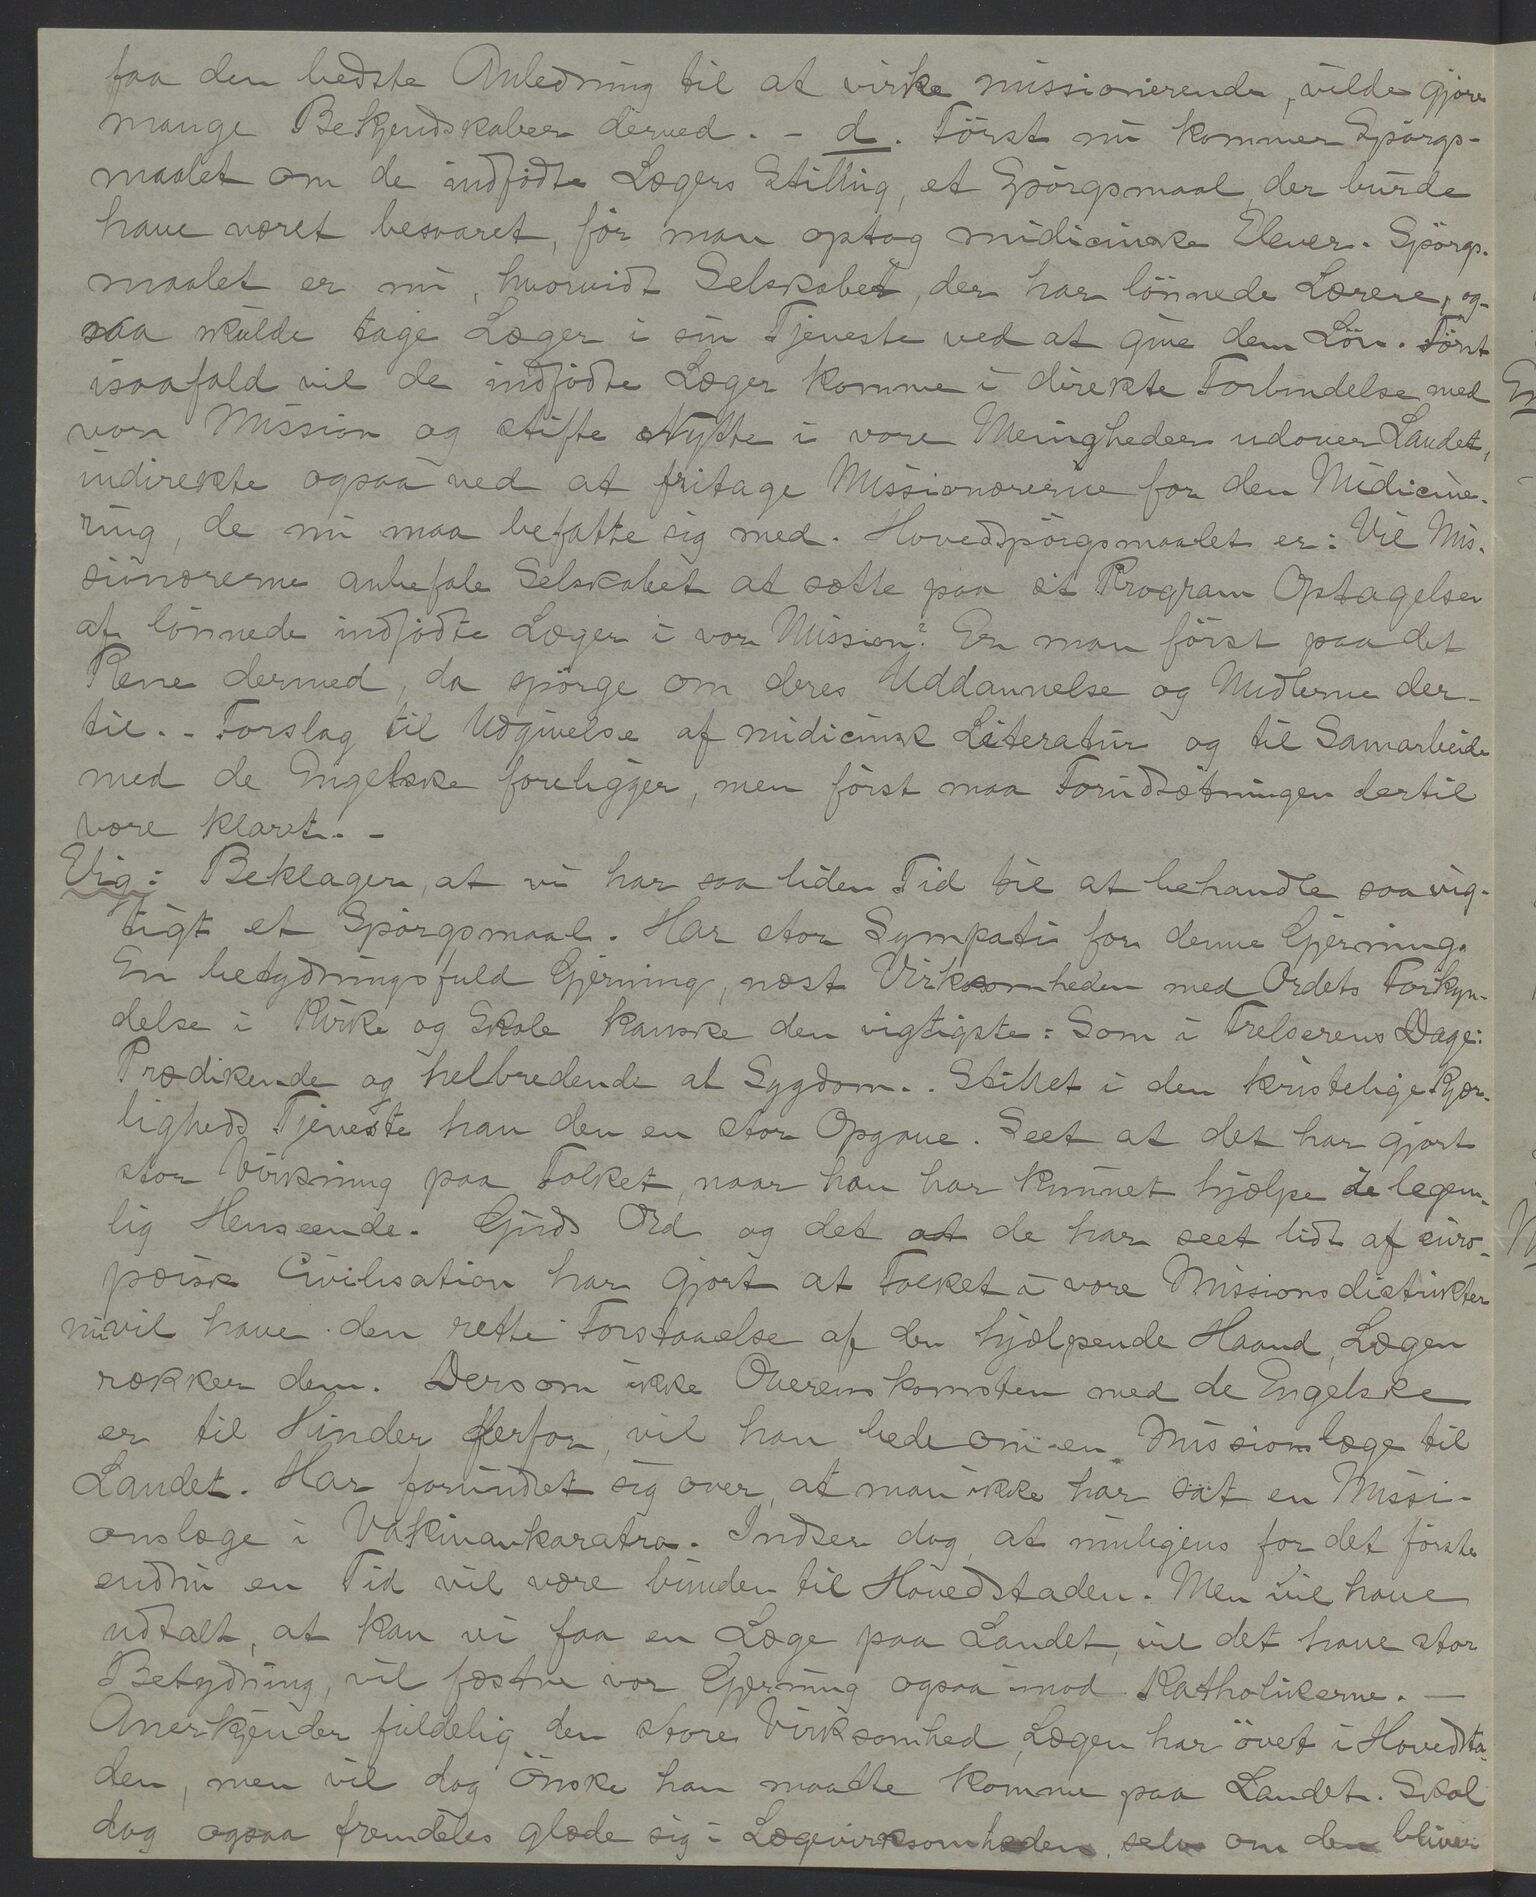 faa den bedste Anledning til at virke missionerende, vilde gjøre
mange Bekjendskaber derved. - d. Först nu kommer Spörgs-
maalet om de indfödte Lægers Stilling, et Spörgsmaal, der burde
have været besvaret, för man optog medicinske Elever. Spörgs-
maalet er nu, hvorvidt Selskabet, der har lönnede Lærere, og-
saa skulde tage Læger i sin Tjeneste ved at give dem Lön. Först
isaafald vil de indfödte Læger komme i direkte Forbindelse med
vor Mission og stifte Nytte i vore Menigheder udover Landet,
indirekte ogsaa ved at fritage Missionærerne for den Medicine-
ring, de nu maa befatte sig med. Hovedspörgsmaalet er: Vil Mis-
sionærerne anbefale Selskabet at sætte paa sit Program Optagelsen
af lönnede indfödte Læger i vor Mission? Er man först paa det
Rene dermed, da spörge om deres Uddannelse og Midlerne der-
til. - Forslag til Udgivelse af medicinsk Literatur og til Samarbeide
med de Engelske foreligger, men först maa Forudsætningen dertil
være klaret. -
Vig: Beklager, at vi har saa liden Tid til at behandle saa vig-
tigt et Spörgsmaal. Har stor Sympati for denne Gjerning.
En betydningsfuld Gjerning, næst Virksomheden med Ordets Forkyn-
delse i Kirke og Skole kanske den vigtigste: Som i Frelserens Dage:
Prædikende og helbredende al Sygdom. - Stillet i den kristelige Kjær-
ligheds Tjeneste har den en stor Opgave. Seet at det har gjort
stor Virkning paa Folket, naar han har kunnet hjælpe i legem-
lig Henseende. Guds Ord og det at de har seet lidt af euro-
pæisk Civilisation har gjort at Folket i vore Missionsdistrikter
nu vil have den rette Forstaaelse af den hjælpende Haand, Lægen
rækker dem. Dersom ikke Overenskomsten med de Engelske
er til Hinder derfor, vil han bede om en Missionslæge til
Landet. Har forundret sig over, at man ikke har sat en Missi-
onslæge i Vakinankaratra. Indser dog, at muligens for det förste
endnu en Tid vil være bunden til Hovedstaden. Men vil have
udtalt, at kan vi faa en Læge paa Landet, vil det have stor
Betydning, vil fæstne vor Gjerning ogsaa mod Katholikerne. -
Anerkjender fuldelig den store Virksomhed, Lægen har övet i Hovedsta-
den, men vil dog önske han maatte komme paa Landet. Skal
dog ogsaa fremdeles glæde sig i Lægevirksomheden, selv om den bliver